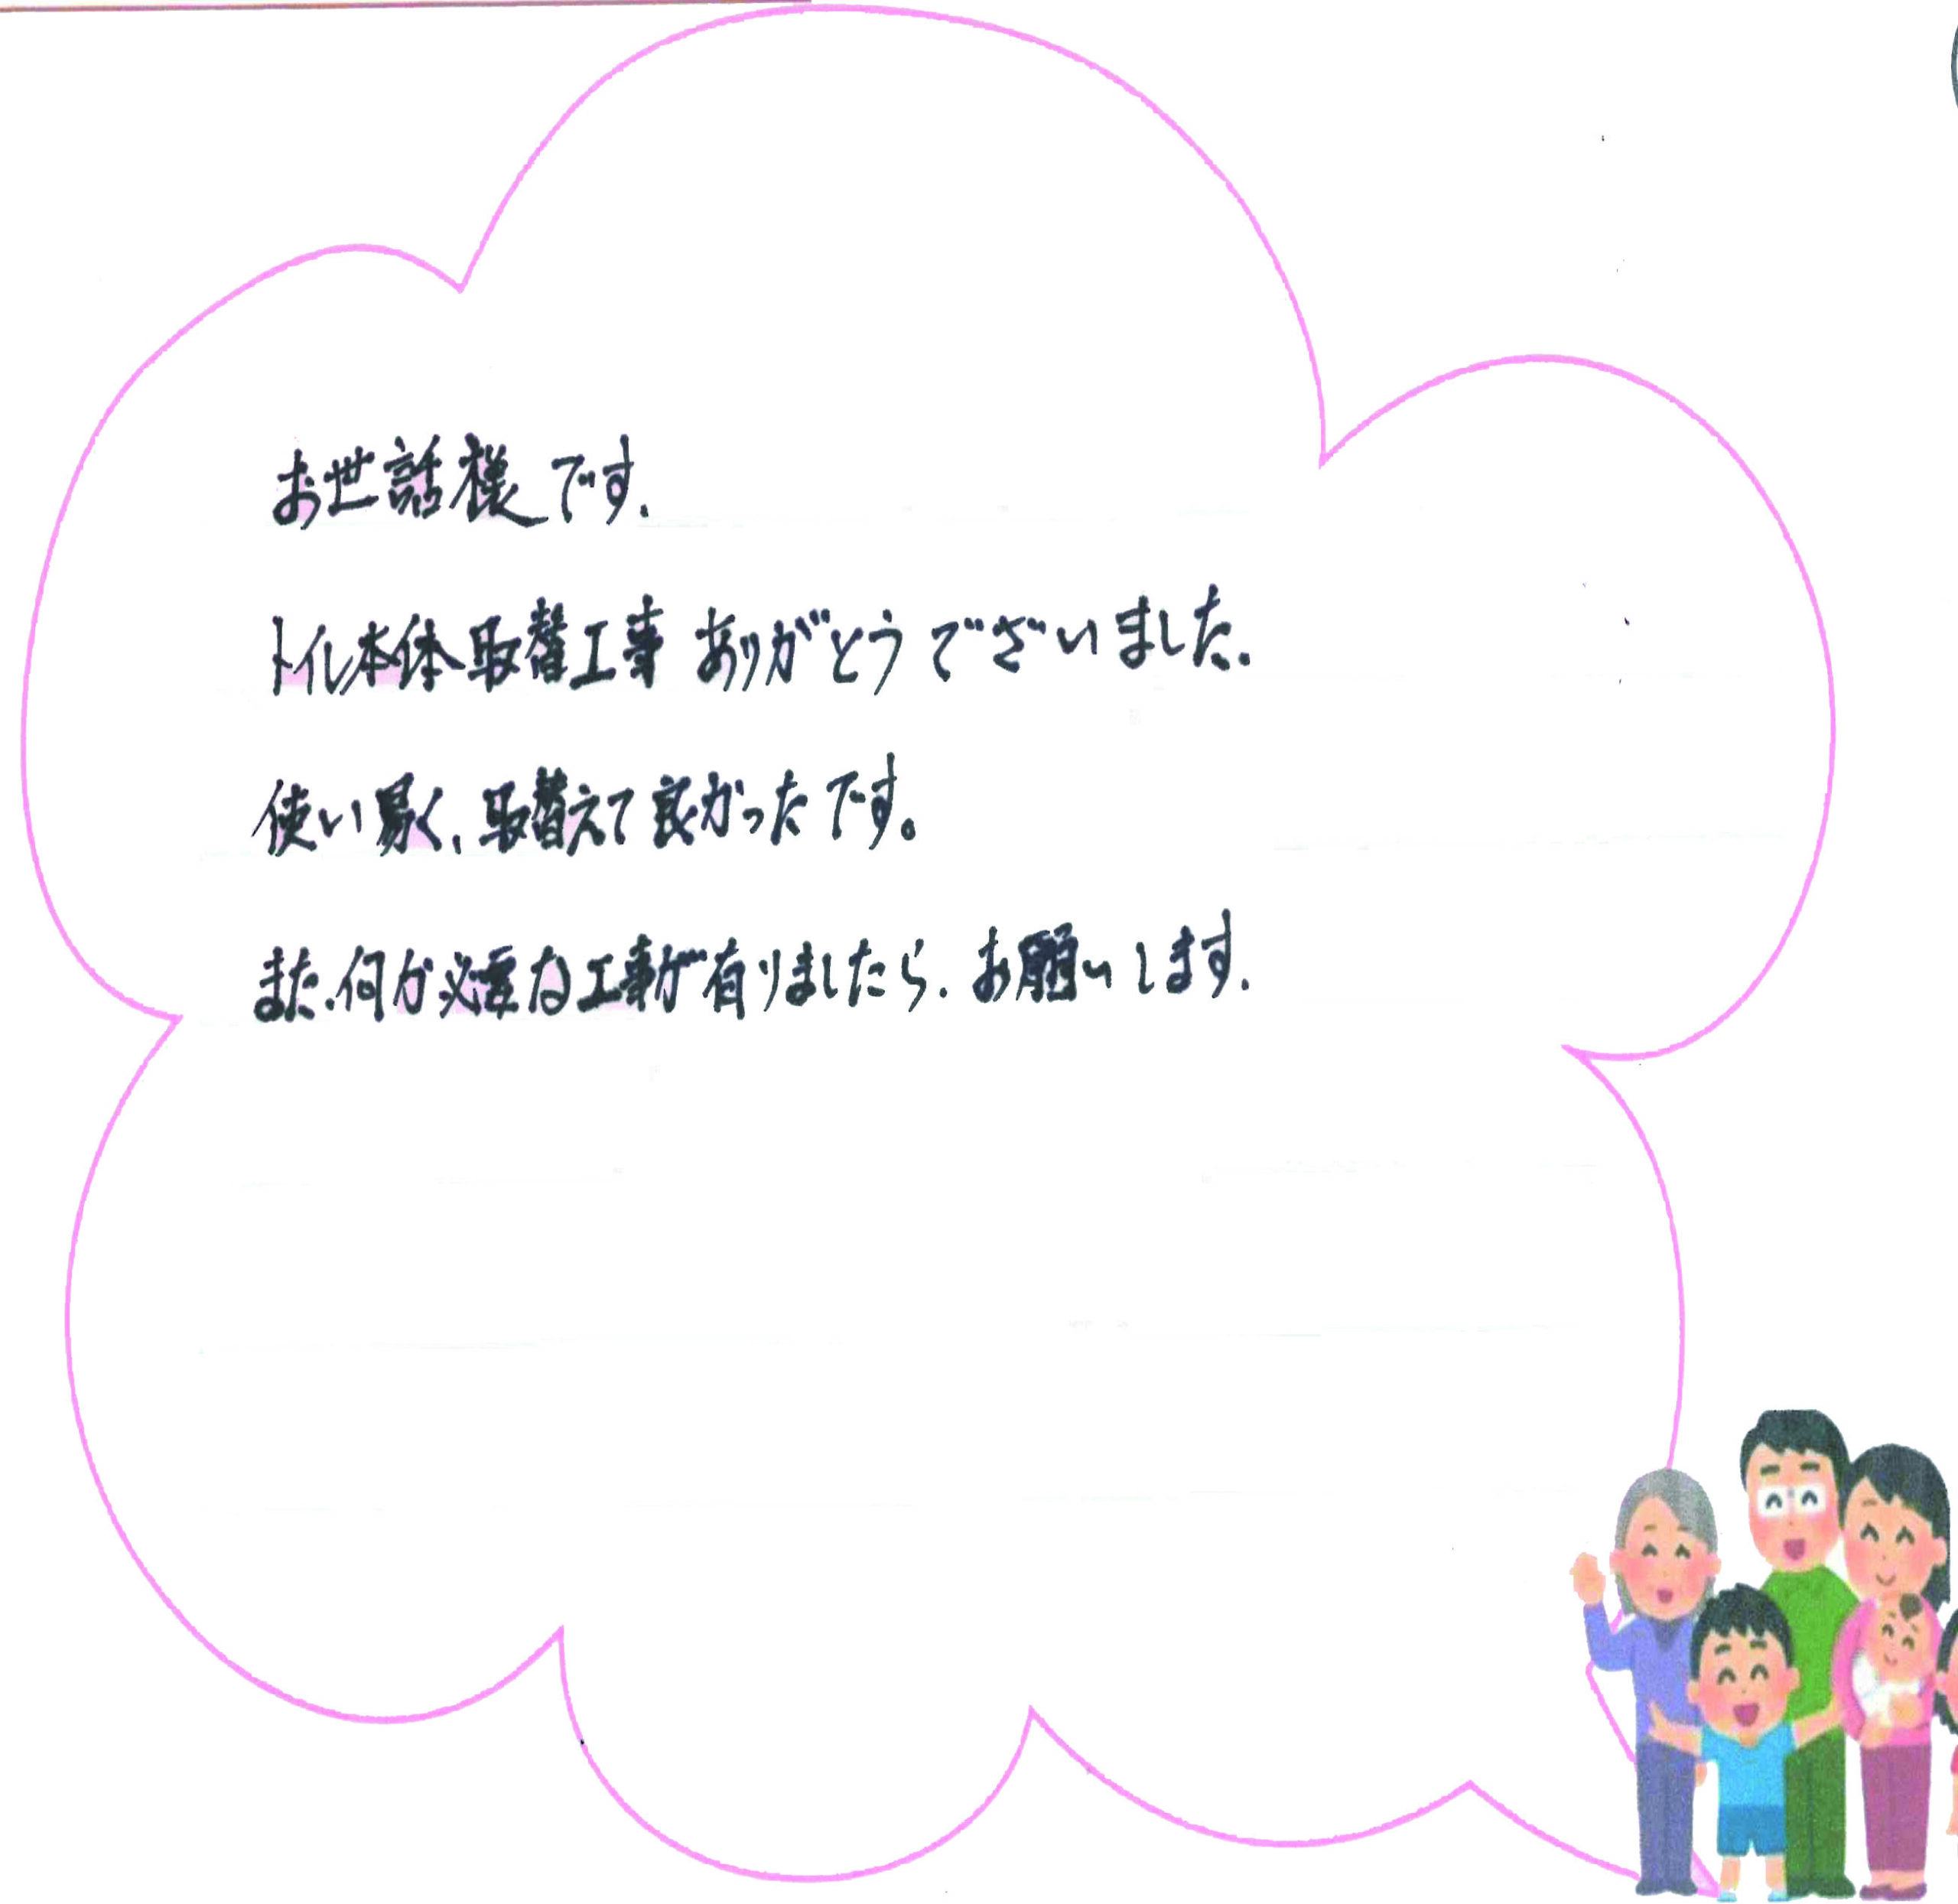 お世話様です.
トイレ本体取替工事 ありがとうございました.
使い易く、取替えて良かったです。
また.何か必要な工事が有りましたら.お願いします.